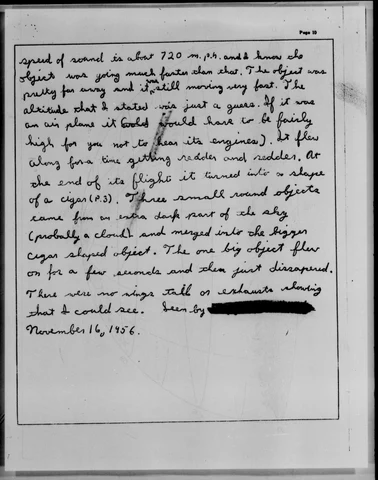 Page 10
speed of sound is abut 720 m.p.h. and I know the
object was going much faster than that. The object was
pretty far away and it was still moving very fast. The
altitude that I stated was just a guess. If it was
an air plane it would have to be fairly
high for you not to hear its engines). It flew
along for a time getting redder and redder. At
the end of its flight it turned into a shape
of a cigar (P.3). Three small round objects
came from an extra dark part of the sky
(probably a cloud) and merged into the bigger
cigar shaped object. The one big object flew
on for a few seconds and then just dissapered.
There were no wings tall or exhausts showing
that I could see. Seen by
November 16, 1956.